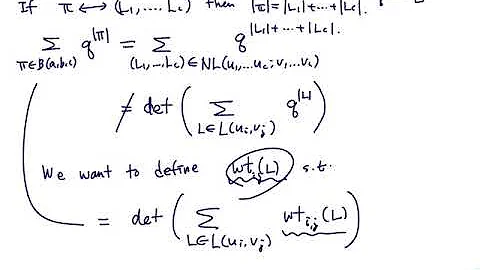 If π ⟷ (L₁, .... L_c) then |π| = |L₁| + ... + |L_c|.
∑_{π∈B(a,b,c)} q^{|π|} = ∑_{(L₁,...,L_c) ∈ NL(u₁,...u_c; v₁...v_c)} q^{|L₁| + ... + |L_c|}.
≠ det ( ∑_{L∈L(u_i,v_j)} q^{|L|} )
We want to define wt_{i,j}(L) s.t.
= det ( ∑_{L∈L(u_i,v_j)} wt_{i,j}(L) )